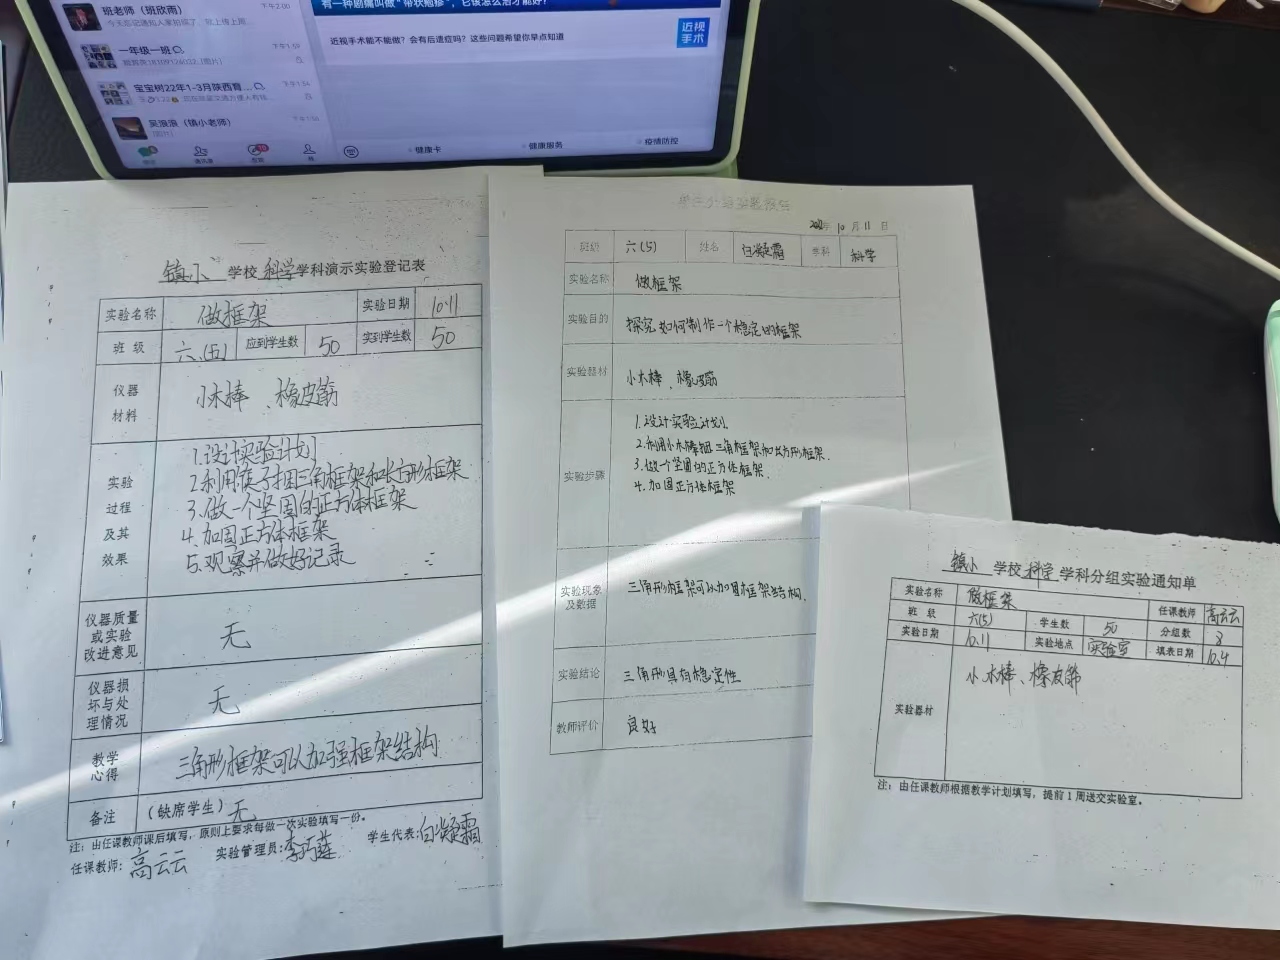 班老师（班欣雨）
下午2:00
有一种剧痛叫做"带状疱疹"，它该怎么治才能好！
一年级一班
下午1:59
近视手术能不能做？会有后遗症吗？这些问题希望你早点知道
近视
手术
宝宝树22年1-3月陕西育...
下午1:54
吴浪浪（镇小老师）
[图片]
健康卡
健康服务
疫情防控
镇小 学校 科学 学科演示实验登记表
实验名称 做框架 实验日期 10.11
班 级 六.(五) 应到学生数 50 实到学生数 50
仪器
材料
小木棒、橡皮筋
实验
过程
及其
效果
1.设计实验计划
2.利用筷子捆三角框架和长方形框架
3.做一个坚固的正方体框架
4.加固正方体框架
5.观察并做好记录
仪器质量
或实验
改进意见
无
仪器损
坏与处
理情况
无
教学
心得
三角形框架可以加强框架结构
备注 （缺席学生）无
注：由任课教师课后填写，原则上要求每做一次实验填写一份。
任课教师：高云云 实验管理员：李巧莲 学生代表：白凝霜
学生分组实验报告
2022年 10 月 11 日
班级 六(5) 姓名 白凝霜 学科 科学
实验名称 做框架
实验目的 探究如何制作一个稳定的框架
实验器材 小木棒、橡皮筋
实验步骤
1.设计实验计划
2.利用小木棒捆三角框架和长方形框架.
3.做一个坚固的正方体框架.
4.加固正方体框架
实验现象
及数据
三角形框架可以加固框架结构.
实验结论 三角形具有稳定性
教师评价 良好
镇小 学校 科学 学科分组实验通知单
实验名称 做框架 任课教师 高云云
班 级 六(5) 学生数 50 分组数 8
实验日期 10.11 实验地点 实验室 填表日期 10.4
实验器材 小木棒、橡皮筋
注：由任课教师根据教学计划填写，提前1周送交实验室。